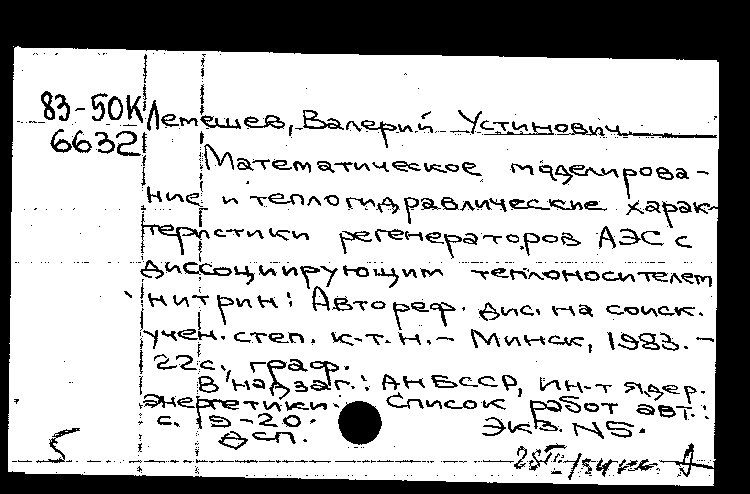 83-50К Лемешев, Валерий Устинович
6632
Математическое моделирова-
ние и теплогидравлические харак-
теристики регенераторов АЭС с
диссоциирующим теплоносителем
нитрин: Автореф. дис. на соиск.
учен. степ. к.т.н. – Минск, 1983. –
22с., граф.
В надзаг.: АН БССР, ин-т ядер.
энергетики. Список работ авт.:
с. 19-20.
ДСП. Экз. №5.
5